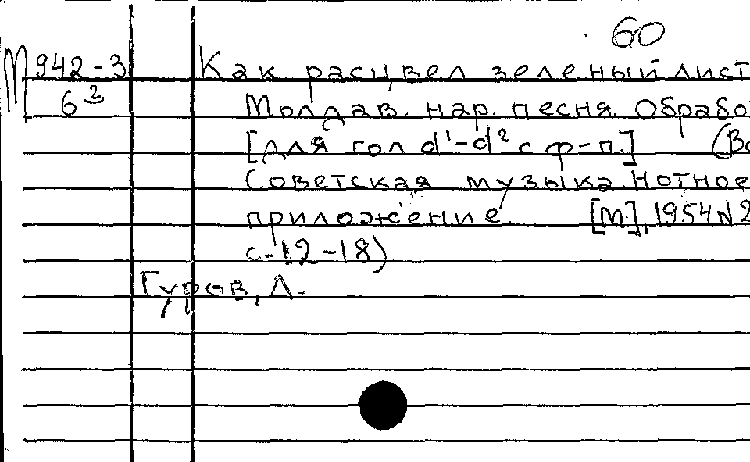 60
М 942-3 Как расцвел зеленый лист
6³ Молдав. нар. песня. Обрабо
[для гол d'-d² с ф-п.] (Во
Советская музыка. Нотное
приложение. [М], 1954 N2
с. 12-18)
Гуров, Л.